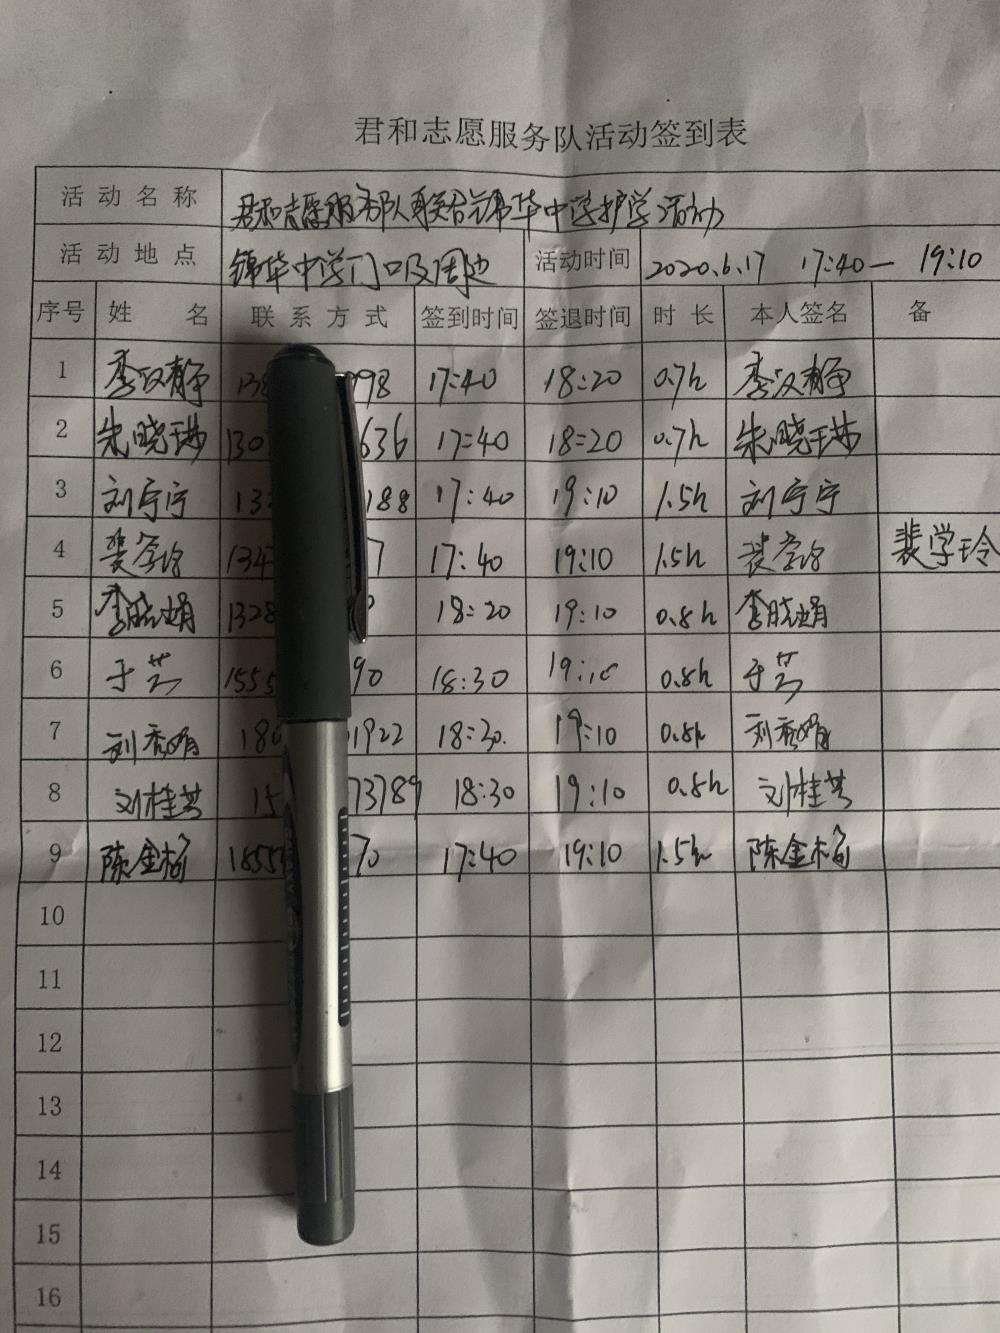 君和志愿服务队活动签到表
活动名称 君和志愿服务队联合锦华中学护学活动
活动地点 锦华中学门口及周边 活动时间 2020.6.17 17:40— 19:10
序号 姓 名 联系方式 签到时间 签退时间 时长 本人签名 备
1 李汉静 138 998 17:40 18:20 0.7h 李汉静
2 朱晓琳 130 636 17:40 18:20 0.7h 朱晓琳
3 刘宁宁 132 188 17:40 19:10 1.5h 刘宁宁
4 裴学玲 134 7 17:40 19:10 1.5h 裴学玲 裴学玲
5 李晓娟 1328 18:20 19:10 0.8h 李晓娟
6 于芸 1555 90 18:30 19:10 0.8h 于芸
7 刘秀娟 180 1922 18:30. 19:10 0.8h 刘秀娟
8 刘桂芸 15 73789 18:30 19:10 0.8h 刘桂芸
9 陈金榆 1855 70 17:40 19:10 1.5h 陈金榆
10
11
12
13
14
15
16